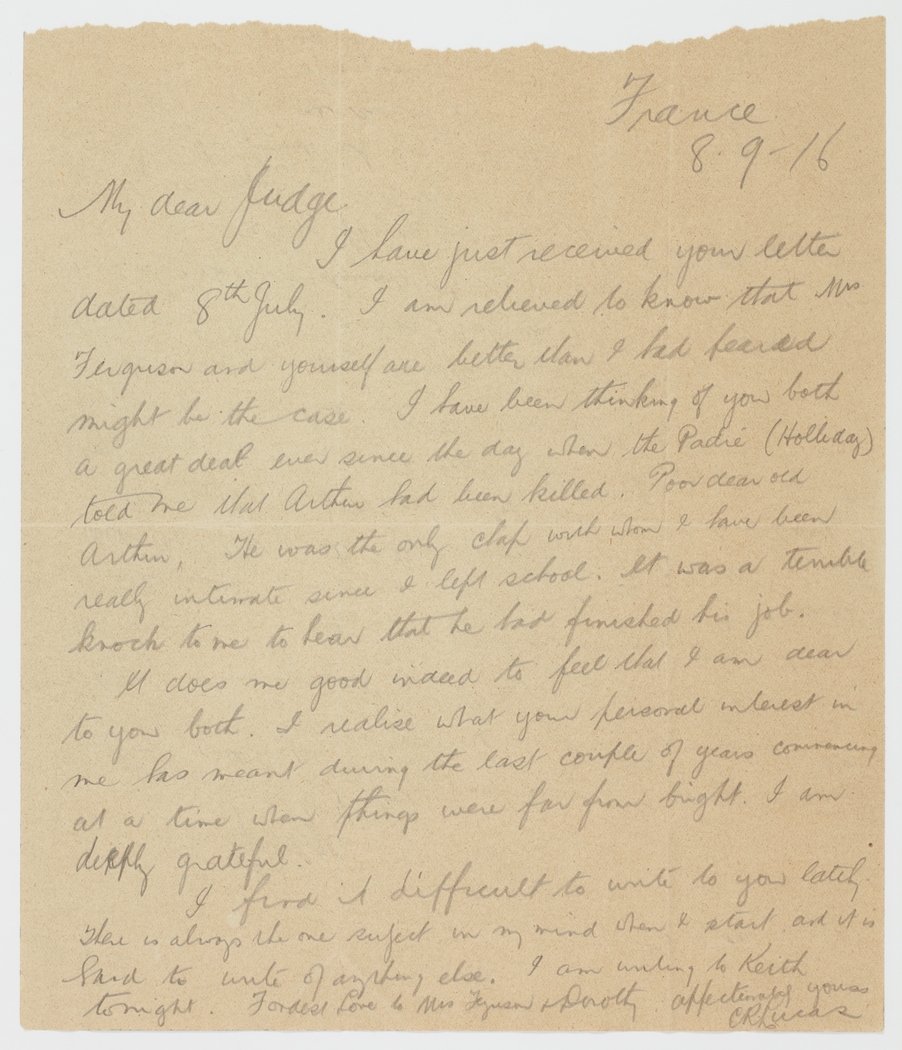 France
8.9-16
My dear Judge.
I have just received your letter
dated 8th July. I am relieved to know that Mrs
Ferguson and yourself are better than I had feared
might be the case. I have been thinking of you both
a great deal ever since the day when the Padre (Holliday)
told me that Arthur had been killed. Poor dear old
Arthur, He was the only chap with whom I have been
really intimate since I left school. It was a terrible
knock to me to hear that he had finished his job.
It does me good indeed to feel that I am dear
to you both. I realise what your personal interest in
me has meant during the last couple of years commencing
at a time when things were far from bright. I am
deeply grateful.
I find it difficult to write to you lately.
There is always the one subject in my mind when I start and it is
hard to write of anything else. I am writing to Keith
tonight. Fondest Love to Mrs Ferguson & Dorothy. affectionately yours
CRLucas